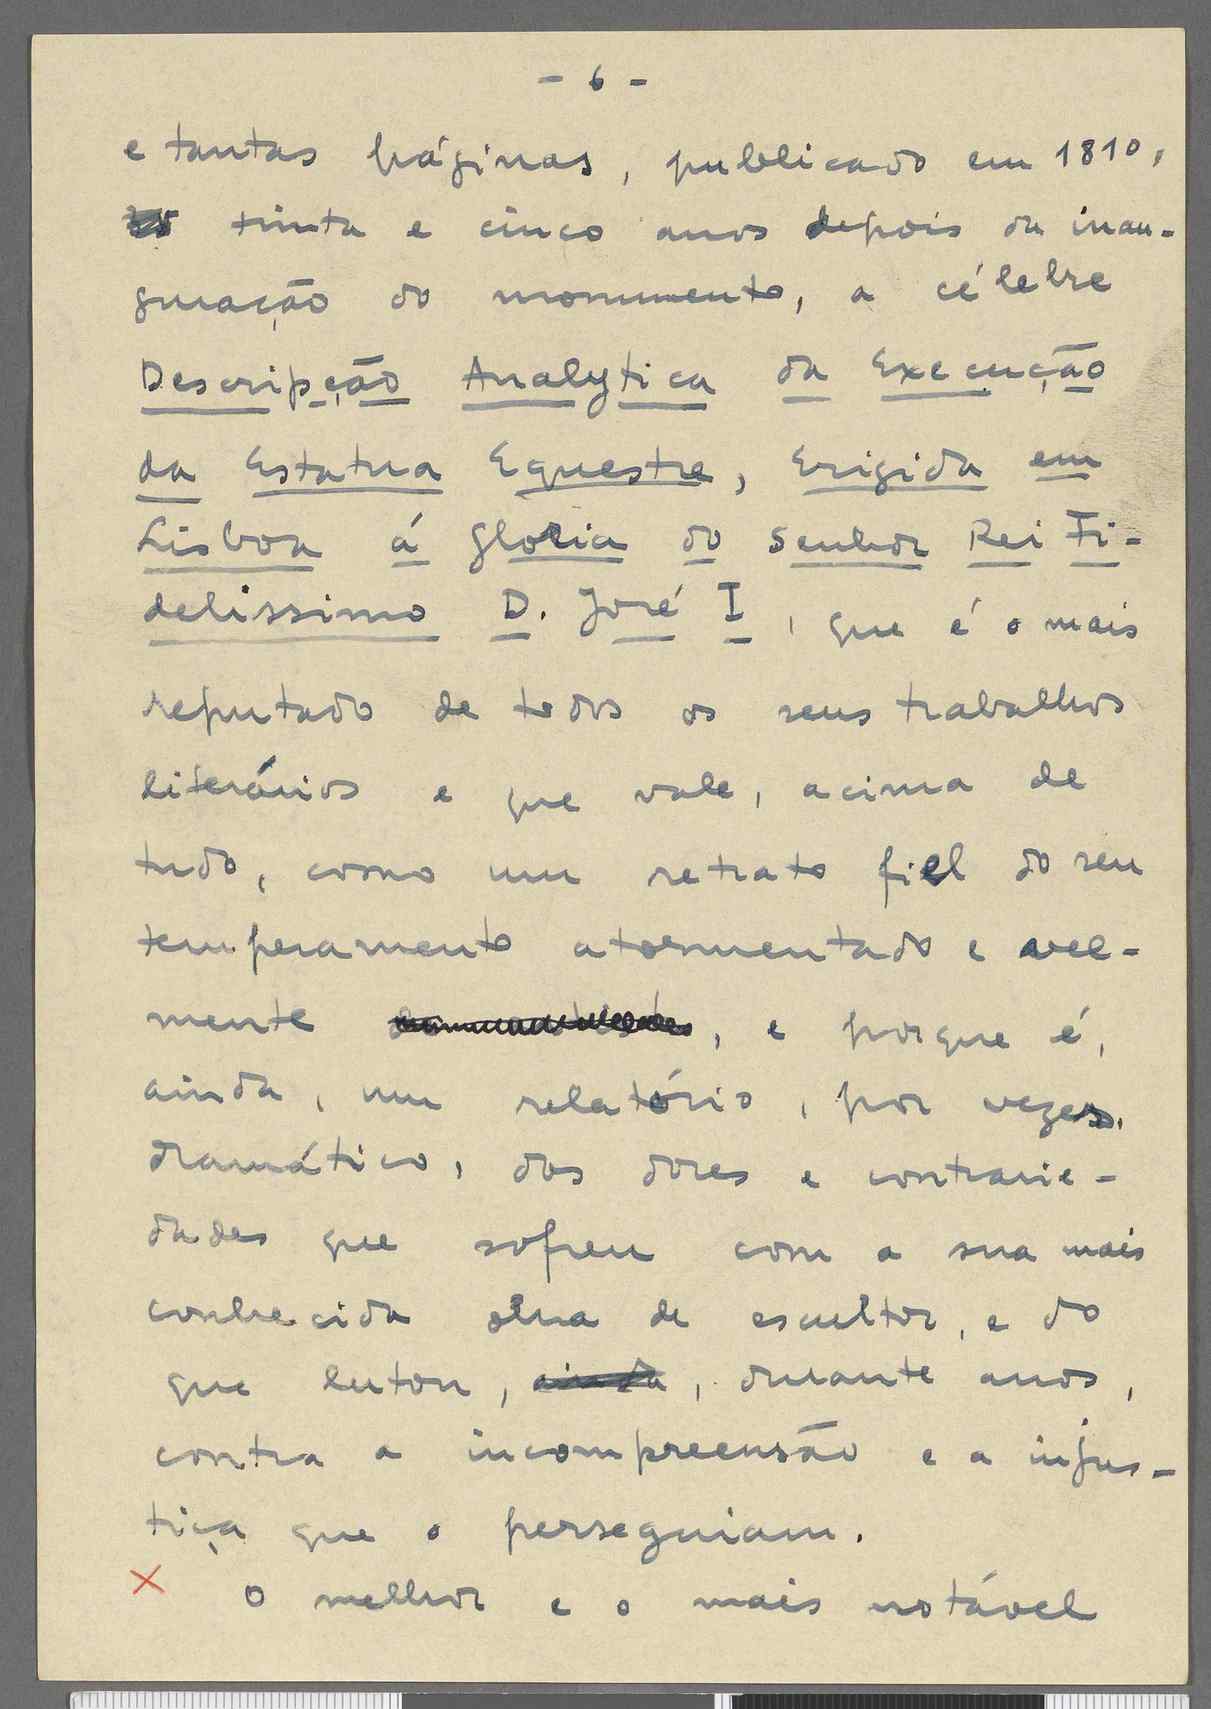 - 6 -
e tantas páginas, publicado em 1810,
trinta e cinco anos depois da inau-
guração do monumento, a célebre
Descripção Analytica da Execução
da Estatua Equestre, Erigida em
Lisboa á Gloria do Senhor Rei Fi-
delissimo D. José I, que é o mais
reputado de todos os seus trabalhos
literários e que vale, acima de
tudo, como um retrato fiel do seu
temperamento atormentado e
mente , e porque é,
ainda, um relatório, por vezes,
dramático, das dores e contrarie-
dades que sofreu com a sua mais
conhecida obra de escultor, e do
que lutou, ainda, durante anos,
contra a incompreensão e a injus-
tiça que o perseguiam.
O melhor e o mais notável